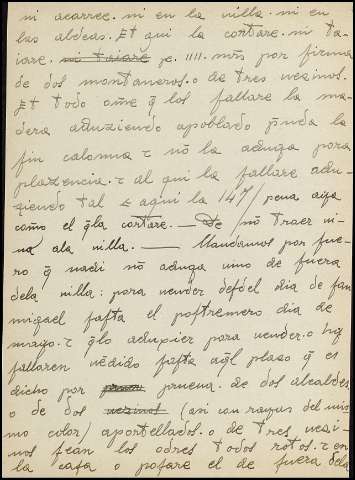 ni acarree. ni en la villa. ni en
las aldeas. Et qui la cortare. ni ta-
iare. ni taiare pe. IIII. mrs por firma
de dos montaneros. o de tres vezinos.
Et todo ome q̃ los fallare la ma-
dera aduziendo apoblado pierda la
fin calonna. τ nõ la aduga pora
plazencia. τ al qui la fallare adu-
ziendo tal e aqui la 147/ pena aya
como el q̃ la cortare. — De / nõ traer vi-
na ala villa. — Mandamos por fue-
ro q̃ nadi nõ aduga uino de fuera
dela villa: para vender desdel dia de san
miguel fasta el postremero dia de
mayo. τ q̃ lo aduxier para vender. o
fallaren vẽdido fasta aq̃l plazo q̃ es
dicho por prueua. de dos alcaldes
o de dos vezinos (asi con rayas del mis-
mo color) aportellados. o de tres vezi-
nos sean los odres todos rotos. τ en
la casa o posare el de fuera dela